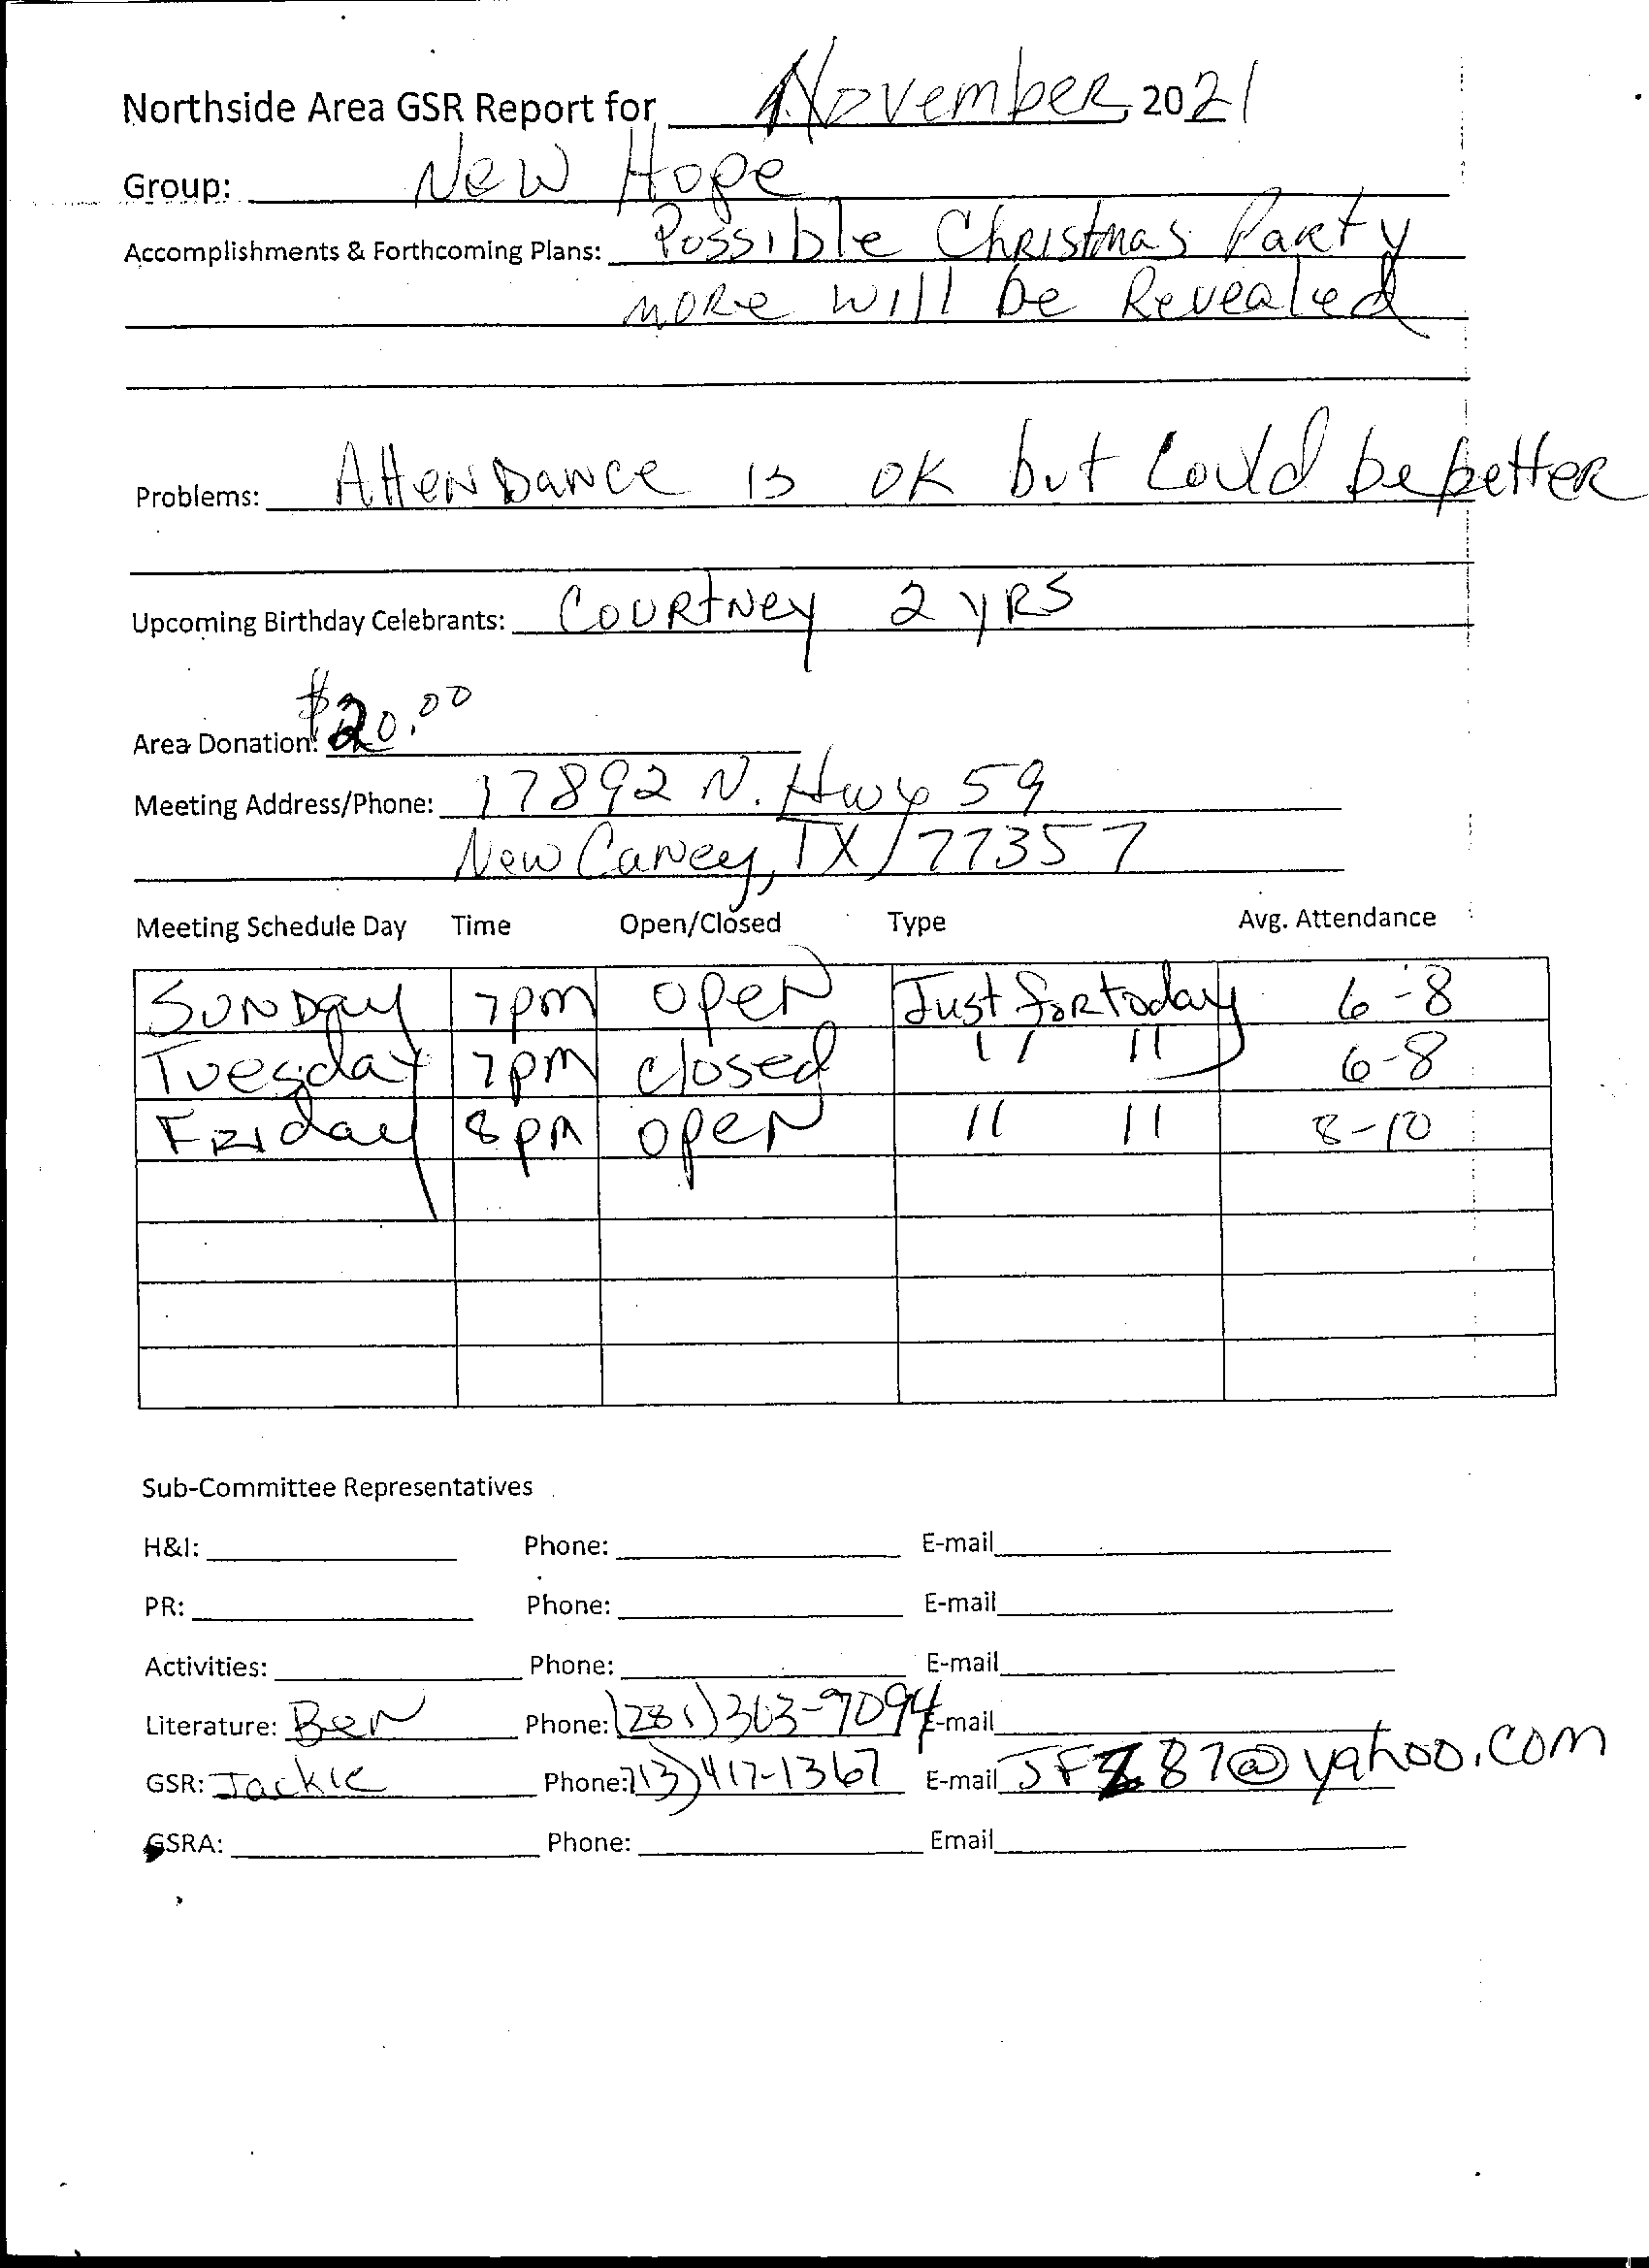 Northside Area GSR Report for November, 2021
Group: New Hope
Accomplishments & Forthcoming Plans: Possible Christmas Party
more will be Revealed
Problems: Attendance is ok but could be better
Upcoming Birthday Celebrants: Courtney 2 yrs
Area Donation: $20.00
Meeting Address/Phone: 17892 N. Hwy 59
New Caney, TX 77357
Meeting Schedule Day Time Open/Closed Type Avg. Attendance
Sunday 7pm open Just for today 6-8
Tuesday 7pm closed " " 6-8
Friday 8pm open " " 8-10
Sub-Committee Representatives
H&I: Phone: E-mail
PR: Phone: E-mail
Activities: Phone: E-mail
Literature: Ben Phone: (281) E-mail
GSR: Jackie Phone: 713) 417-1367 E-mail
GSRA: Phone: Email